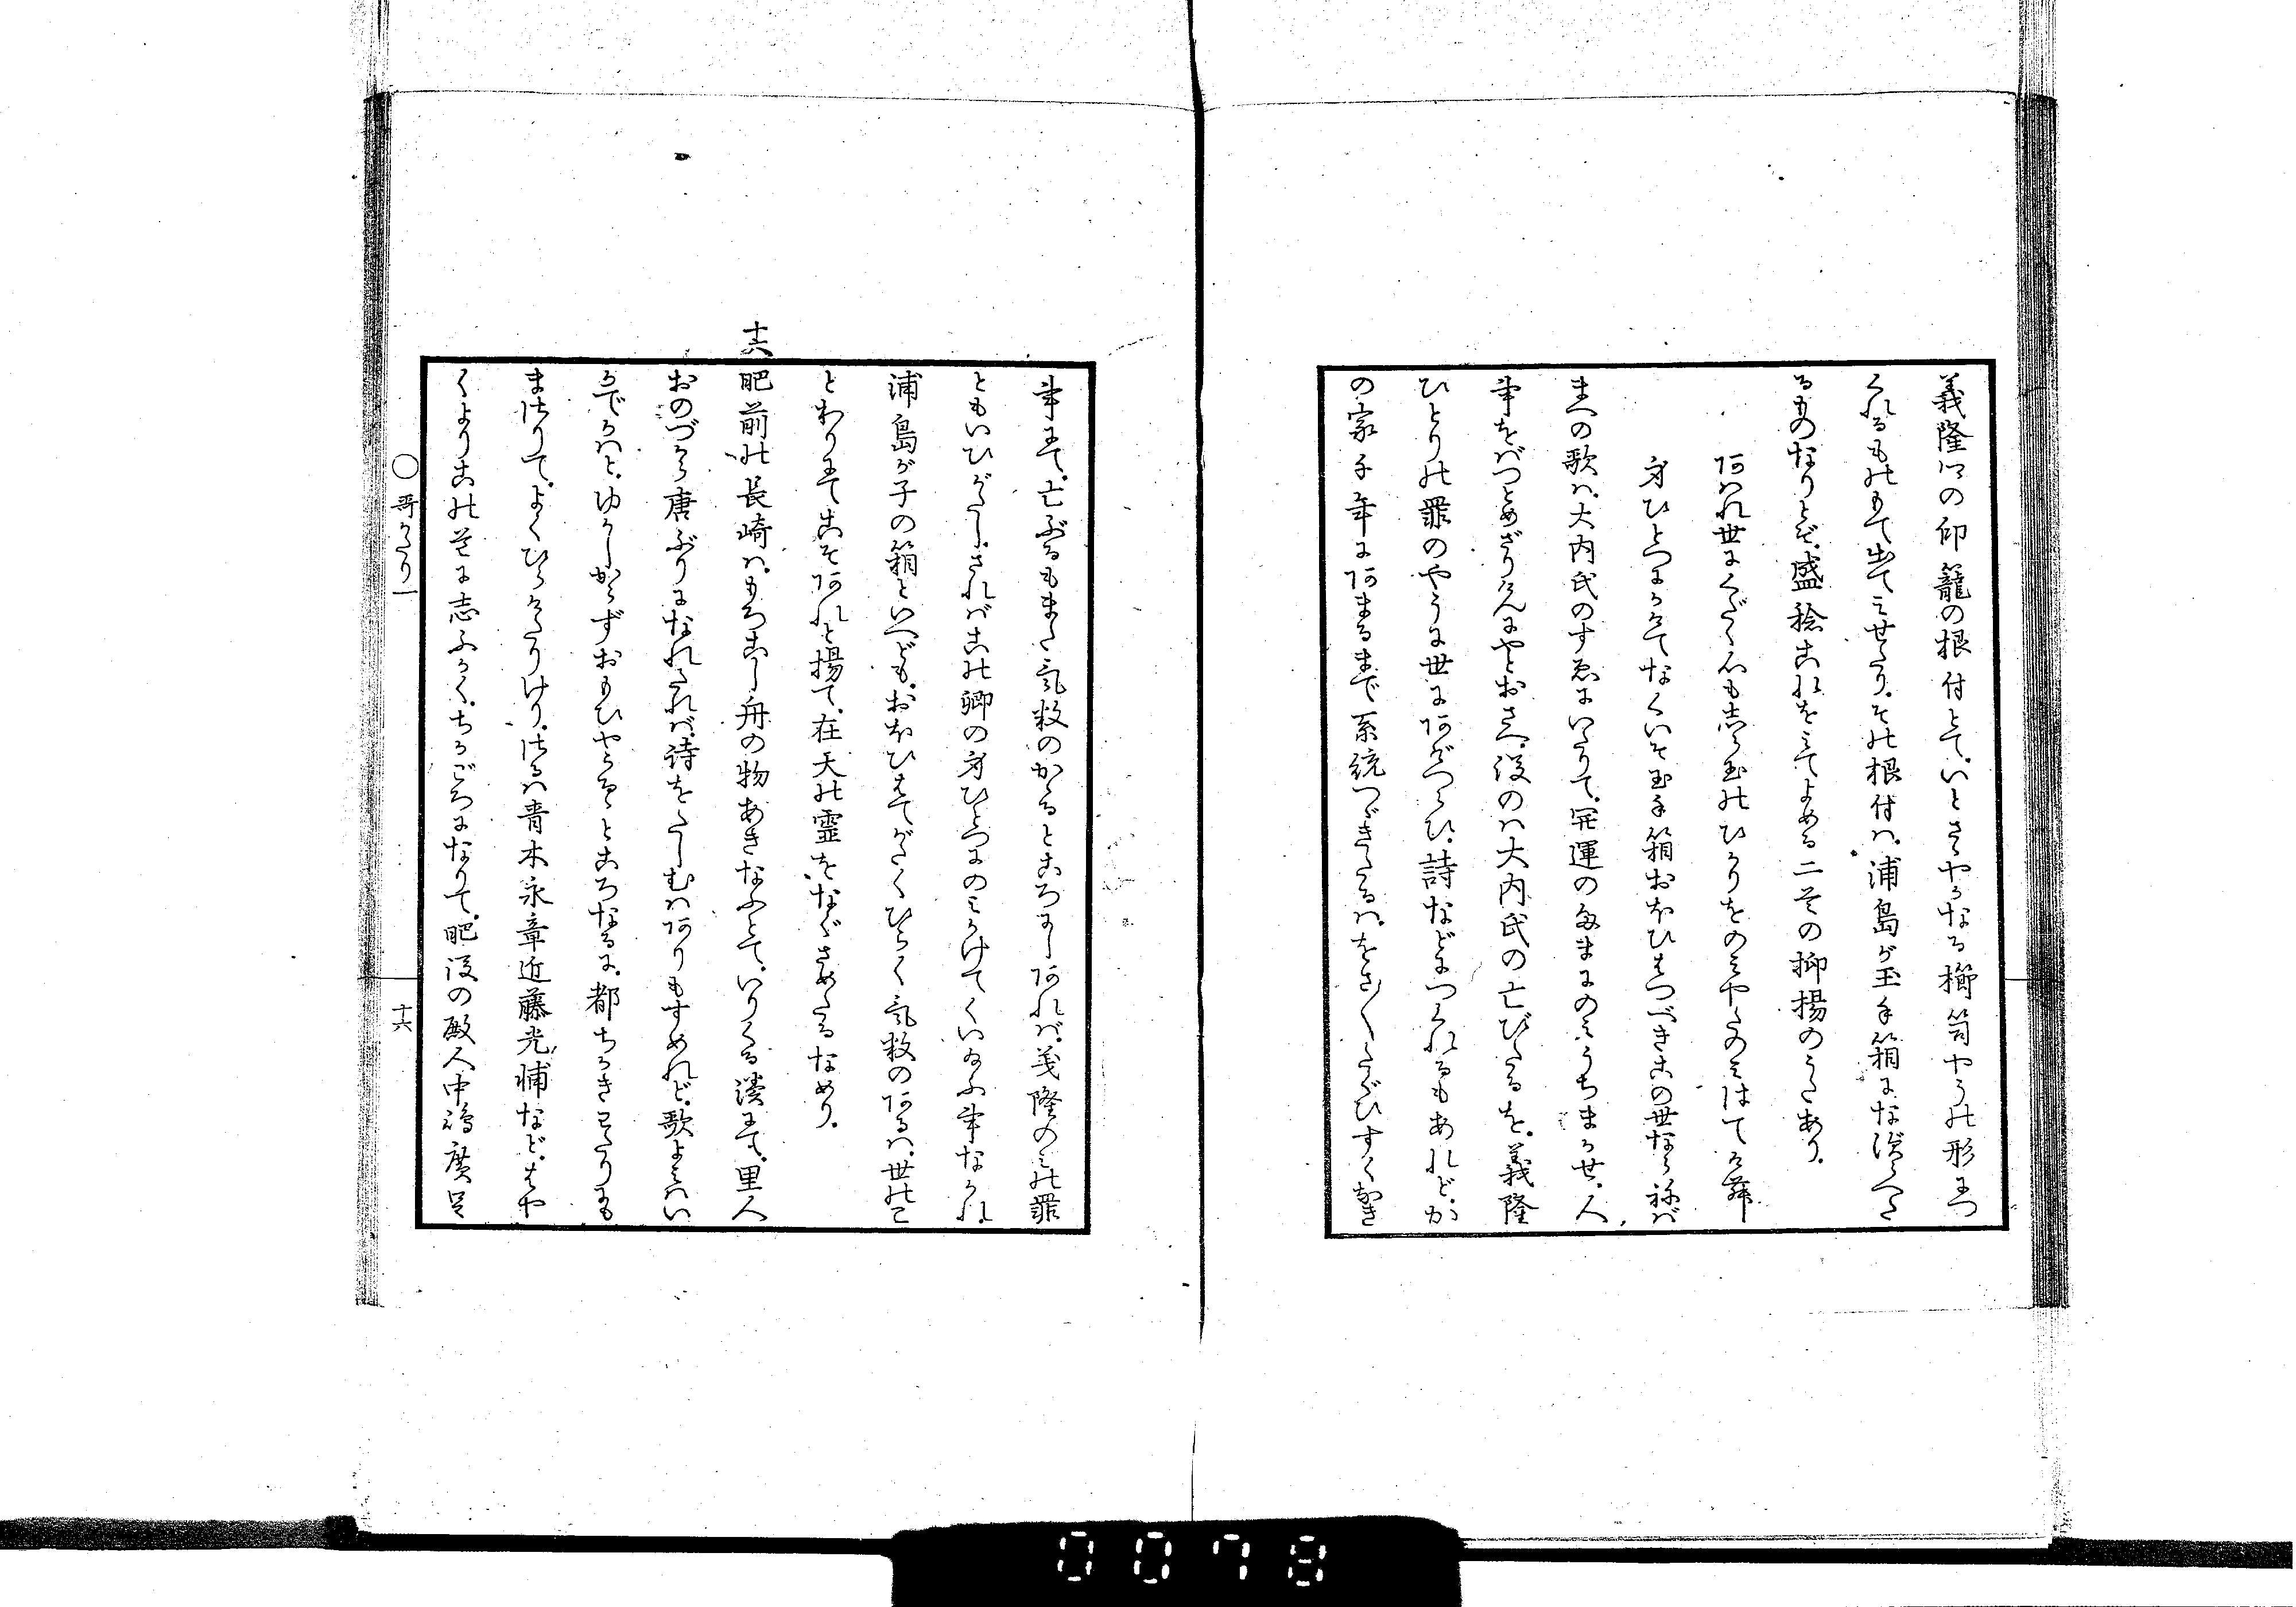 義隆ぬしの印籠の根付とて、いとさゝやかなる櫛笥やうの形につ
くれるものもて出てみせたり、その根付は、浦島が玉手箱になぞらへた
るものなりとぞ、盛稔これをみてよめる二首の抑揚のうたあり、
あはれ世にくだらぬもしら玉のひかりをのみやたのみはてけむ
身ひとつにかけてなくいそ玉手箱おほひはつべきこの世ならねば
まへの歌は、大内氏のすゑにいたりて、開運のたまにのみうちまかせ、人
事をばつとめざりけんにやとおさへ、後のは大内氏の亡びたるを、義隆
ひとりの罪のやうに世にあげつらひ、詩などにつくれるもあれど、か
の家千年にあまるまで系統つゞきたるは、をさ〳〵たぐひすくなき
事にて、亡ぶるもまた気数のかゝるところにしあれば、義隆のみの罪
ともいひがたし、さればこの卿の身ひとつにのみかけてくいなふ事なかれ、
浦島が子の箱といへども、おほひはてがたくひらく気数のあるは、世のこ
とわりにてこそあれと揚て、在天の霊をなぐさめたるなめり、
十六
肥前の長崎は、もろこし舟の物あきなふとて、いりくる湊にて、里人
おのづから唐ぶりになれたれば、詩をたしむはありもすめれど、歌よみはい
かでかはと、ゆかしからずおもひやらるゝところなるに、都ちかきわたりにも
まさりて、よくひらけたりけり、さるは青木永章近藤光輔など、はや
くよりこの道に志ふかく、ちかごろになりて、肥後の殿人中嶋広足
○哥かたり一
十六
0078